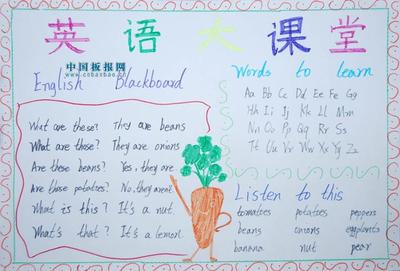 英语大课堂
中国板报网
www.cnbanbao.cn
English Blackboard
What are these? They are beans
What are these? They are onions
Are these beans? Yes, they are
Are these potatoes? No, they arent.
What is this? It's a nut.
What's that? It's a lemon.
Words to learn
Aa Bb Cc Dd Ee Ff Gg
Hh Ii Jj Kk Ll Mm
Nn Oo Pp Qq Rr Ss
Tt Uu Vv Ww Xx Yy Zz
Listen to this
tomatoes potatoes peppers
beans onions eggplants
banana nut pear